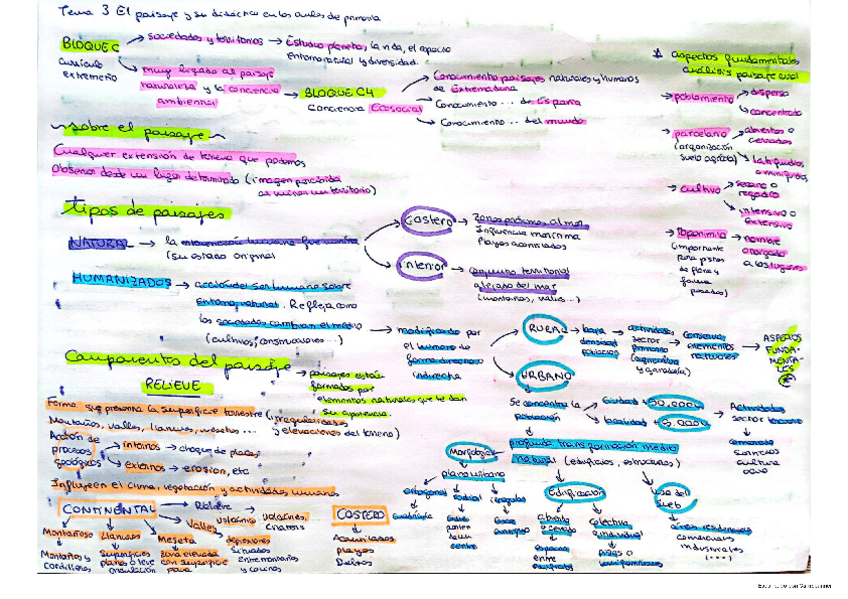 Tema 3 El paisaje y su didáctica en las aulas de primaria
BLOQUE C → sociedades y territorios → Estudio planeta, la vida, el espacio
entorno natural y diversidad.
Currículo
extremeño
muy ligado al paisaje
naturaleza y la conciencia
ambiental
→ BLOQUE C4
Conciencia Ecosocial
Conocimiento paisajes naturales y humanos
de Extremadura
Conocimiento ... de España
Conocimiento ... del mundo
* Aspectos fundamentales
análisis paisaje rural
→ poblamiento → disperso
→ concentrado
→ parcelario → abiertos o
cerrados
(organización
suelo agrícola)
→ cultivo → secano o
regadío
intensivo o
extensivo
→ Toponimia → nombre
otorgado
a los lugares
(importante
para pistas
de flora y
fauna
pasadas)
Sobre el paisaje
Cualquier extensión de terreno que podemos
observar desde un lugar determinado (imagen percibida
al mirar un territorio)
Tipos de paisajes
NATURAL → la
(su estado original
Costero → Zonas próximas al mar
Influencia marítima
Playas acantilados
Interior → Conjunto territorial
alejado del mar
(montañas, valles...)
HUMANIZADOS → acción del ser humano sobre
entorno natural. Refleja como
las sociedades cambian el medio
(cultivos, construcciones...)
→ modificado por
el humano de
forma directa o
indirecta
RURAL → baja
densidad
población
→ actividades
sector
primario
(agricultura
y ganadería)
→ conserva
elementos
naturales
→ ASPECTOS
FUNDA-
MENTA-
LES
URBANO
Se concentra la
población
→ ciudad +50.000
→ localidad +5.000
→ Actividades
sector terciario
comercio
servicios
cultura
ocio
profunda transformación medio
natural (edificios, estructuras)
Componentes del paisaje
→ paisajes están
formados por
elementos naturales que le dan
su apariencia.
RELIEVE
Forma que presenta la superficie terrestre (irregularidades
y elevaciones del terreno)
Montañas, valles, llanuras, mesetas ...
Acción de
procesos
geológicos
→ internos → choque de placas
→ externos → erosión, etc
Influye en el clima, vegetación y actividades humanas
CONTINENTAL → Relieve
volcánico → volcanes,
Montañoso
Montañas y
cordilleras
Llanuras
Superficies
planas o leve
ondulación
Meseta
zona elevada
con superficie
plana
Valles → depresiones
situadas
entre montañas
y colinas
COSTERO
Acantilados
playas
Deltas
Morfología
plano urbano
ortogonal
cuadrícula
radial
centro
irregular
Edificación
abierta
o cerrada
espacios
entre
edificios
colectiva
o individual
pisos o
unifamiliares
uso del
suelo
áreas residenciales
comerciales
industriales
(...)